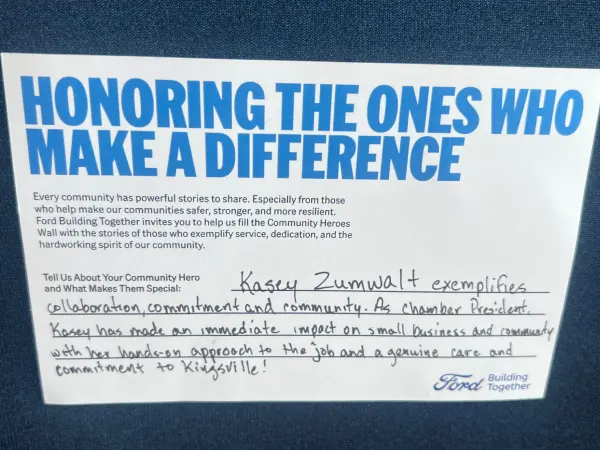 HONORING THE ONES WHO
MAKE A DIFFERENCE
Every community has powerful stories to share. Especially from those
who help make our communities safer, stronger, and more resilient.
Ford Building Together invites you to help us fill the Community Heroes
Wall with the stories of those who exemplify service, dedication, and the
hardworking spirit of our community.
Tell Us About Your Community Hero
and What Makes Them Special:
Kasey Zumwalt exemplifies
collaboration, commitment and community. As chamber President,
Kasey has made an immediate impact on small business and community
with her hands-on approach to the job and a genuine care and
commitment to Kingsville!
Ford Building
Together